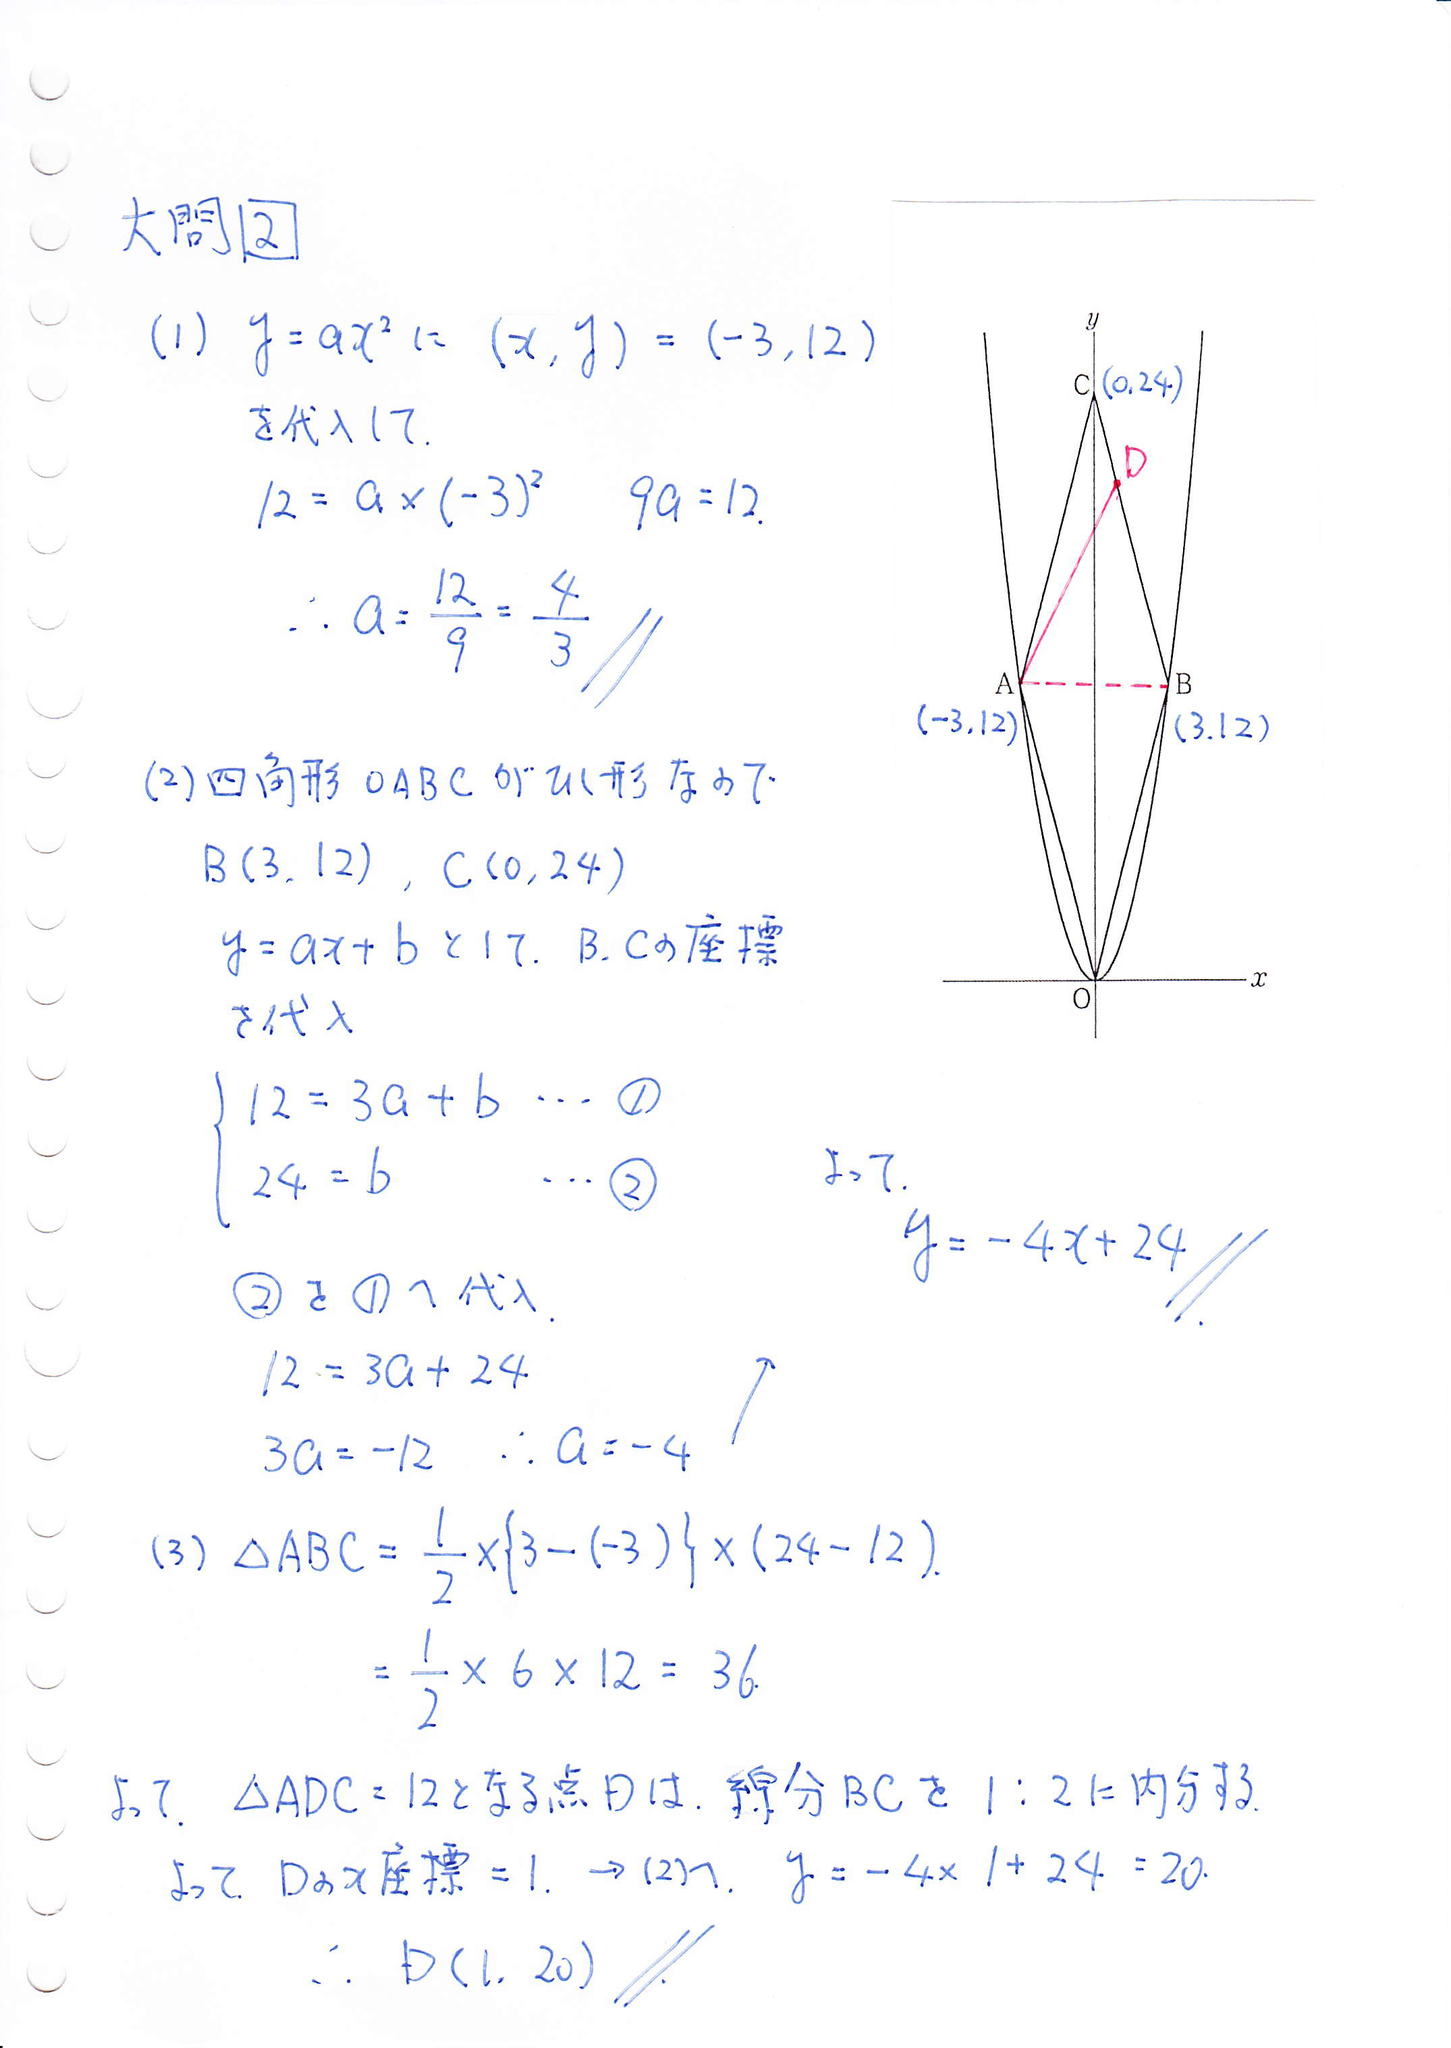 大問2
(1) y=ax²に (x, y) = (-3,12)
を代入して.
12 = a×(-3)² 9a=12.
∴ a = 12/9 = 4/3
(2)四角形OABCがひし形なので
B(3.12), C(0,24)
y=ax+bとして. B.Cの座標
を代入
12 = 3a+b … ①
24 = b … ②
②を①へ代入.
12 = 3a+24
3a=-12 ∴a=-4
よって.
y=-4x+24
(3) △ABC = 1/2 ×{3-(-3)}×(24-12).
= 1/2 × 6 × 12 = 36
よって △ADC=12となる点Dは. 線分BCを 1:2に内分する.
よって Dのx座標=1. →(2)へ. y=-4×1+24 =20.
∴ D(1.20)
y
C(0.24)
D
A
B
(-3.12)
(3.12)
x
O